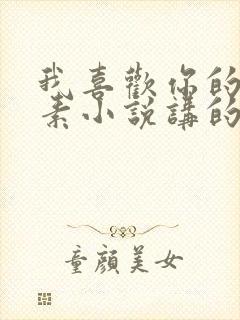 我喜歡你的
素小說講的
童顏美女